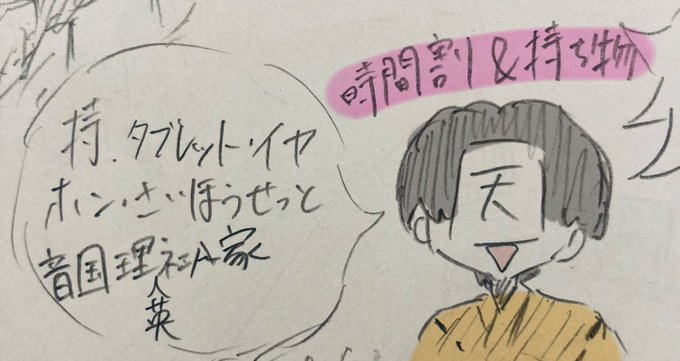 時間割&持ち物
持.タブレット・イヤ
ホン・さいほうせっと
音国理社A家
英
天